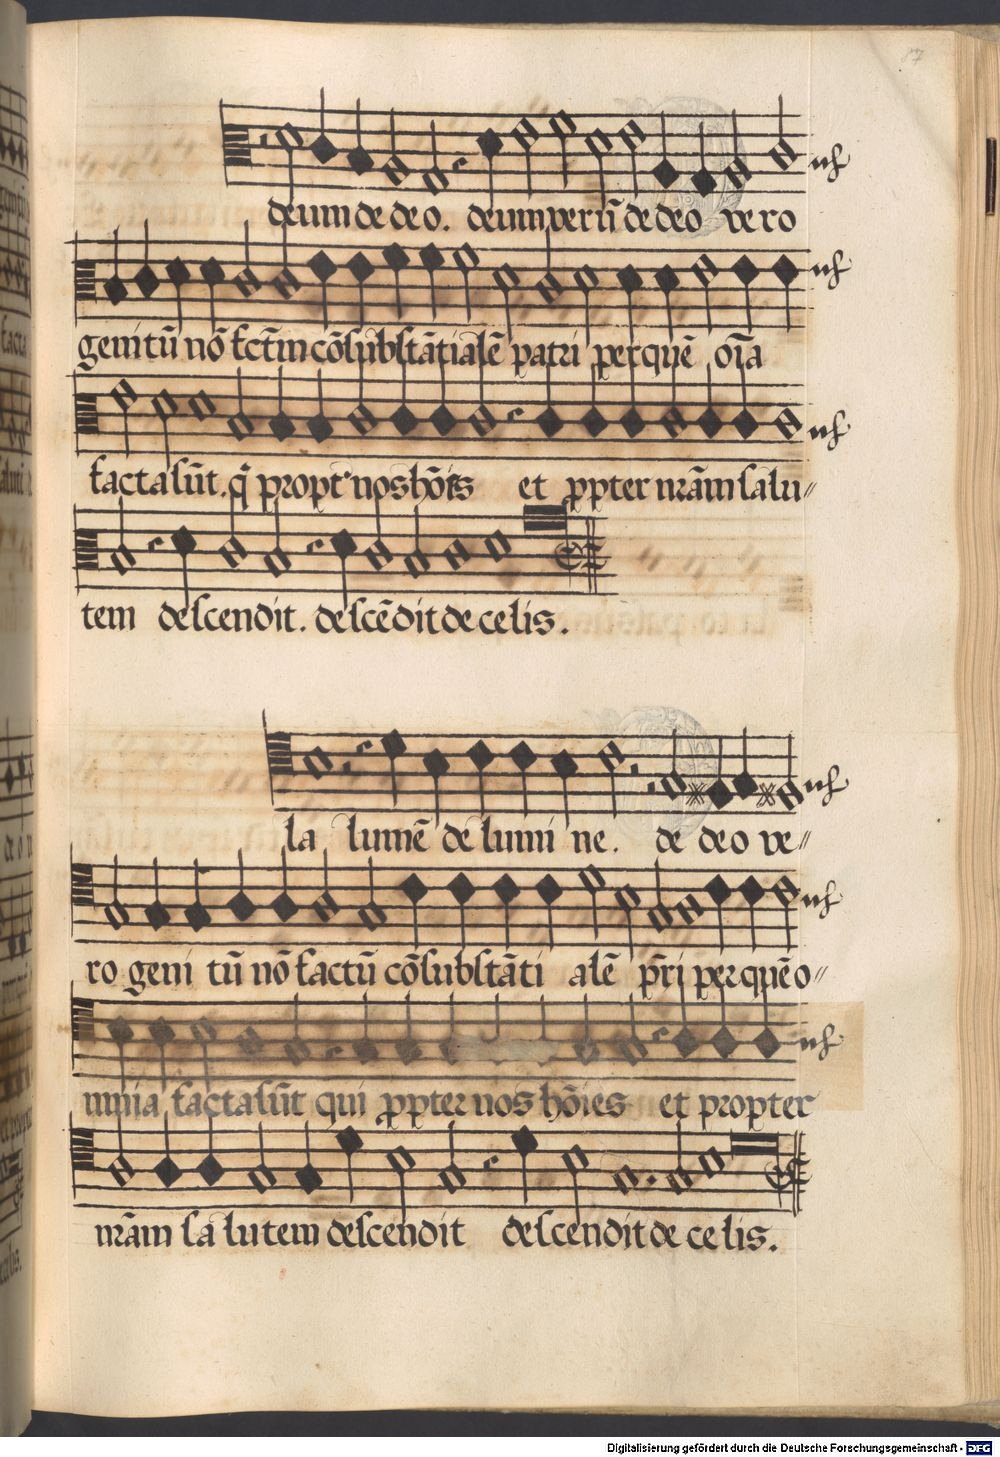 87
deum de deo. deum verū de deo vero
genitū nō fctm cōsubstātialē patri per quē oīa
facta sūt. q̄ propt' nos hōīēs et ꝓpter nrām salu〃
tem descendit. descēdit de celis.
la lumē de lumi ne. de deo ve〃
ro geni tū nō factū cōsubstāti alē p̄ri per quē o〃
mnia facta sūt qui ꝓpter nos hōies et propter
nrām sa lutem descendit descendit de celis.
Digitalisierung gefördert durch die Deutsche Forschungsgemeinschaft - DFG